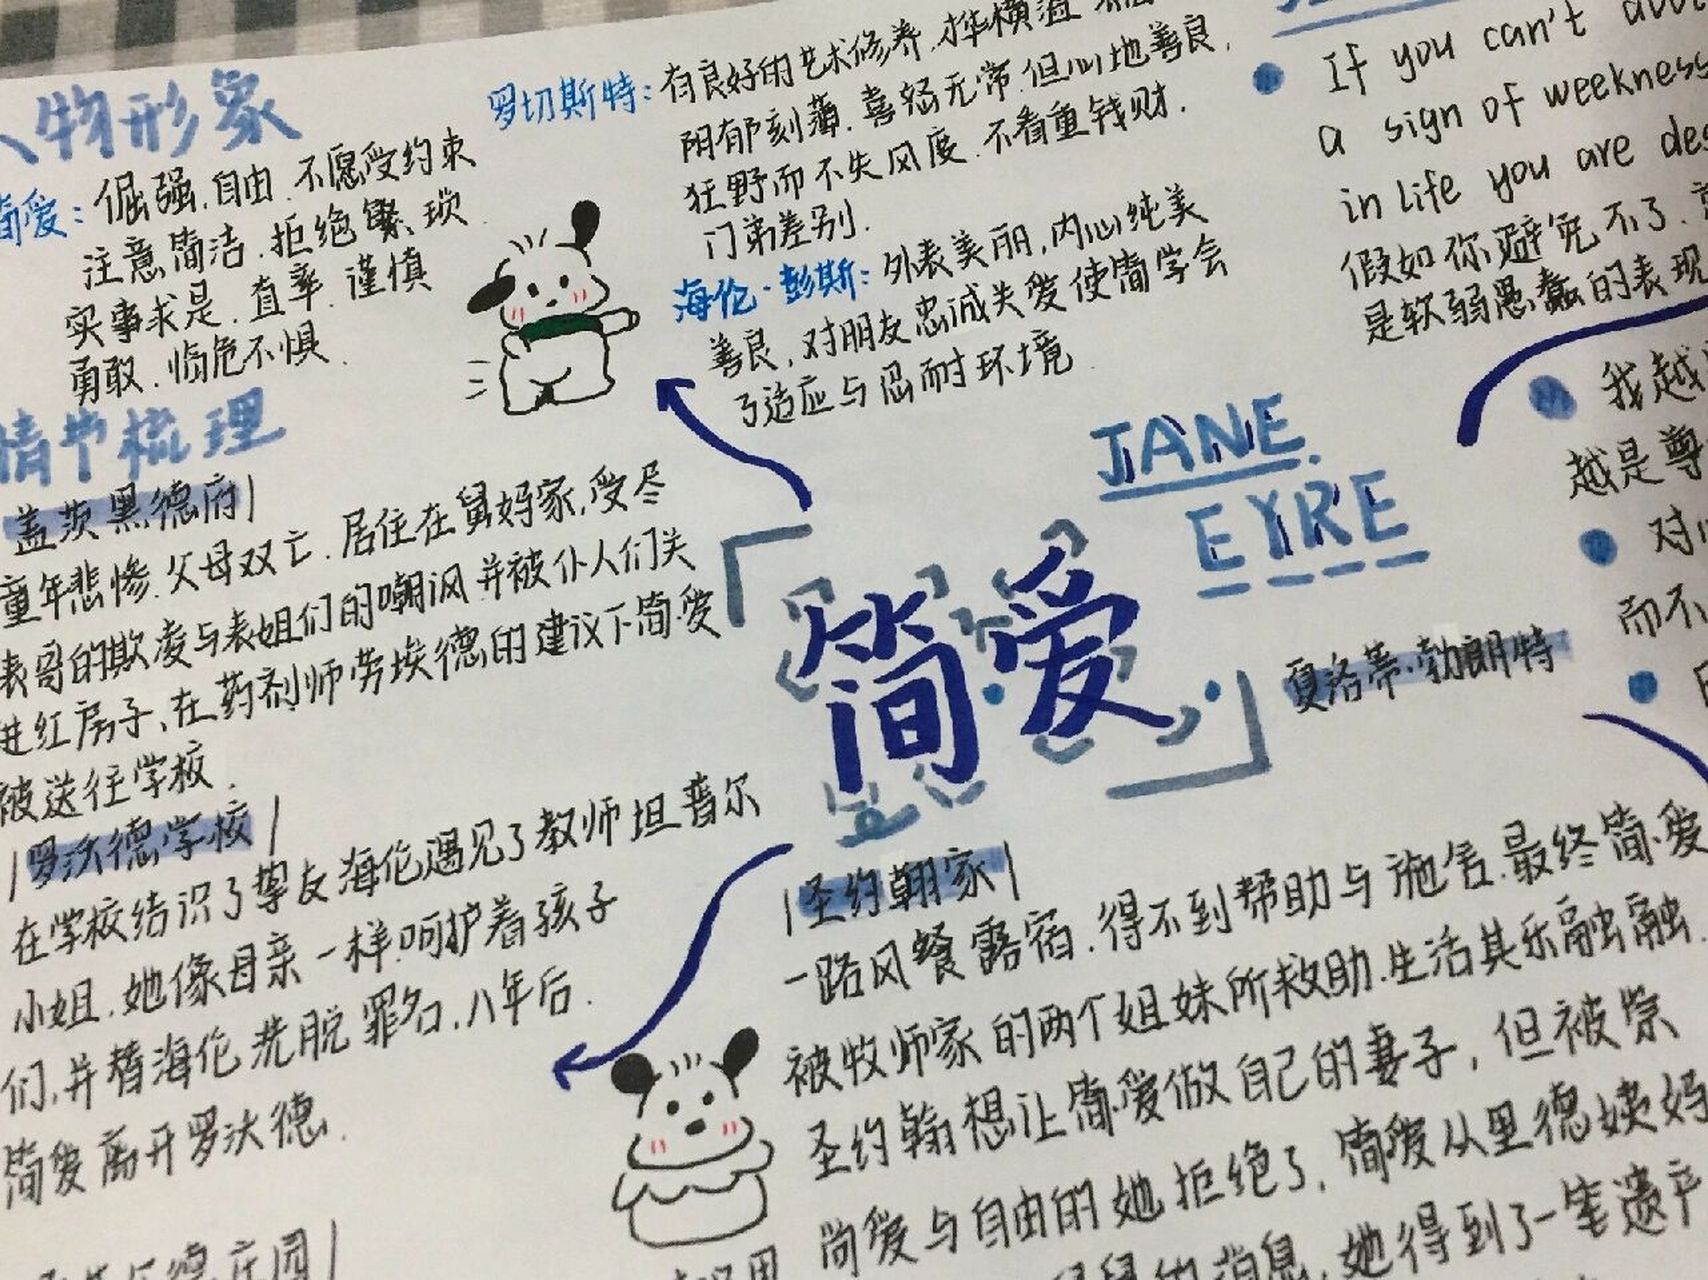 人物形象
简爱：倔强.自由.不愿受约束
注意简洁.拒绝繁琐.
实事求是.直率.谨慎
勇敢.临危不惧.
罗切斯特：有良好的艺术修养.才华横溢
阴郁刻薄.喜怒无常.但心地善良.
狂野而不失风度.不看重钱财.
门第差别.
海伦·彭斯：外表美丽,内心纯美
善良,对朋友忠诚关爱使简学会
了适应与忍耐环境.
If you can't
a sign of weekness
in life you are
假如你避免不了.
是软弱愚蠢的表现
情节梳理
盖茨黑德府|
童年悲惨.父母双亡.居住在舅妈家,受尽
表哥的欺凌与表姐们的嘲讽并被仆人们关
进红房子,在药剂师劳埃德的建议下简爱
被送往学校.
|罗沃德学校|
在学校结识了挚友海伦遇见了教师坦普尔
小姐.她像母亲一样呵护着孩子
们,并替海伦洗脱罪名.八年后.
简爱离开罗沃德.
庄园|
JANE.
EYRE
「简爱·」
夏洛蒂·勃朗特
我越
越是尊
对
而不
|圣约翰家|
一路风餐露宿.得不到帮助与施舍.最终简爱
被牧师家的两个姐妹所救助.生活其乐融融.
圣约翰想让简爱做自己的妻子,但被崇
尚爱与自由的她拒绝了.简爱从里德姨妈
的消息,她得到了一笔遗产